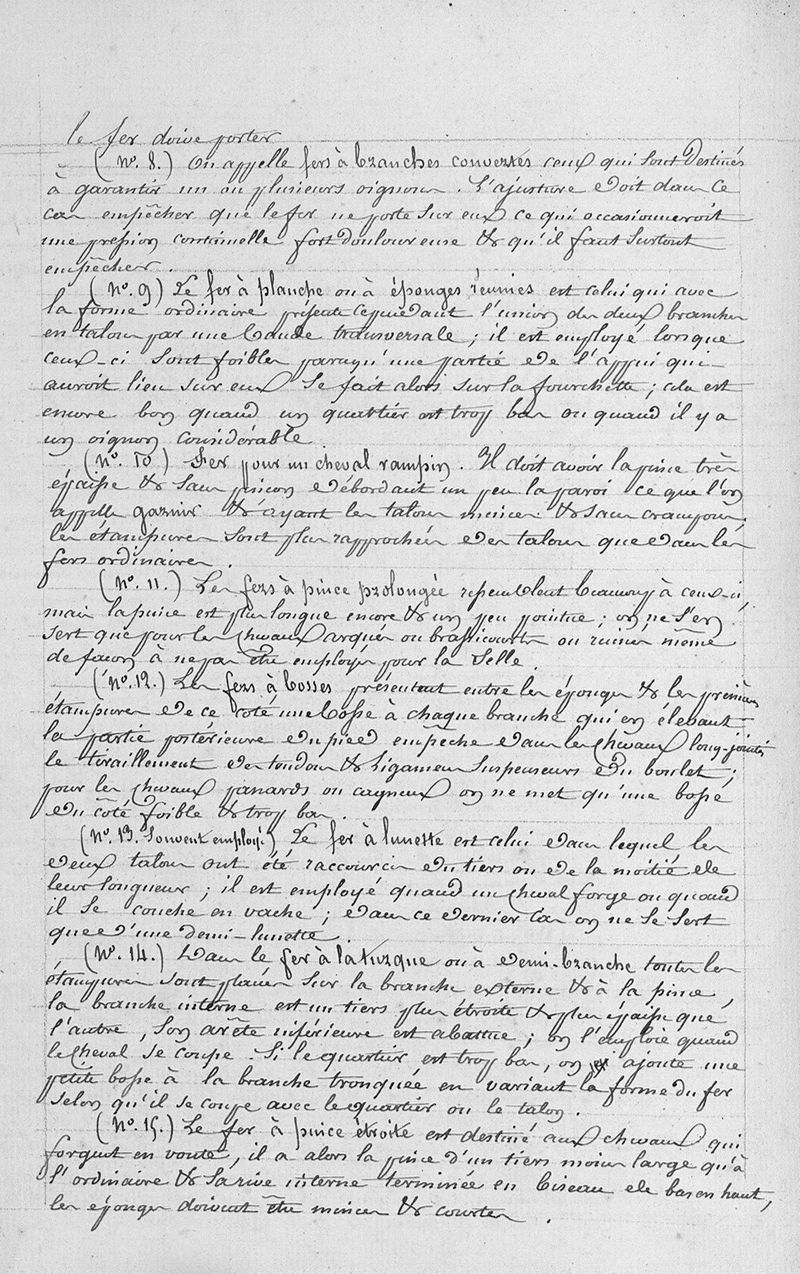 le fer doive porter
(N°. 8.) On appelle fers à branches couvertes ceux qui sont destinés
à garantir un ou plusieurs oignons. L'ajusture doit dans ce
cas empêcher que le fer ne porte sur eux ce qui occasionneroit
une pression continuelle fort douloureuse & qu'il faut surtout
empêcher.
(N°. 9) Le fer à planche ou à éponges réunies est celui qui avec
la forme ordinaire présente cependant l'union des deux branches
en talons par une bande transversale; il est employé lorsque
ceux-ci sont foibles parcequ'une partie de l'appui qui
auroit lieu sur eux se fait alors sur la fourchette; cela est
encore bon quand un quartier est trop bas ou quand il y a
un oignon considérable.
(N°. 10) Fer pour un cheval rampin. Il doit avoir la pince très
épaisse & sans pinçon débordant un peu la paroi ce que l'on
appelle garnir & ayant les talons minces & sans crampons.
les étampures sont plus rapprochées des talons que dans les
fers ordinaires.
(N°. 11.) Les fers à pince prolongée ressemblent beaucoup à ceux-ci,
mais la pince est plus longue encore & un peu pointue; on ne s'en
sert que pour les chevaux arqués ou brassicourts ou ruinés même
de façon à ne pas être employés pour la selle.
(N°. 12.) Les fers à bosses présentent entre les éponges & les premières
étampures de ce coté une bosse à chaque branche qui en élevant
la partie postérieure du pied empêche dans les chevaux long-jointés
le tiraillement des tendons & ligamens suspenseurs du boulet;
pour les chevaux panards ou cagneux on ne met qu'une bosse
du côté foible & trop bas.
(N°. 13. Souvent employé) Le fer à lunette est celui dans lequel les
deux talons ont été raccourcis du tiers ou de la moitié de
leurs longueurs; il est employé quand un cheval forge ou quand
il se couche en vache; dans ce dernier cas on ne se sert
que d'une demi-lunette.
(N°. 14.) Dans le fer à la turque ou à demi-branche toutes les
étampures sont placées sur la branche externe & à la pince,
la branche interne est un tiers plus étroite & plus épaisse que
l'autre, son arête inférieure est abattue; on l'emploie quand
le cheval se coupe. Si le quartier est trop bas, on ajoute une
petite bosse à la branche tronquée en variant la forme du fer
selon qu'il se coupe avec le quartier ou le talon.
(N°. 15.) Le fer à pince étroite est destiné aux chevaux qui
forgent en voute, il a alors la pince d'un tiers moins large qu'à
l'ordinaire & sa rive interne terminée en biseau de bas en haut,
les éponges doivent être minces & courtes.